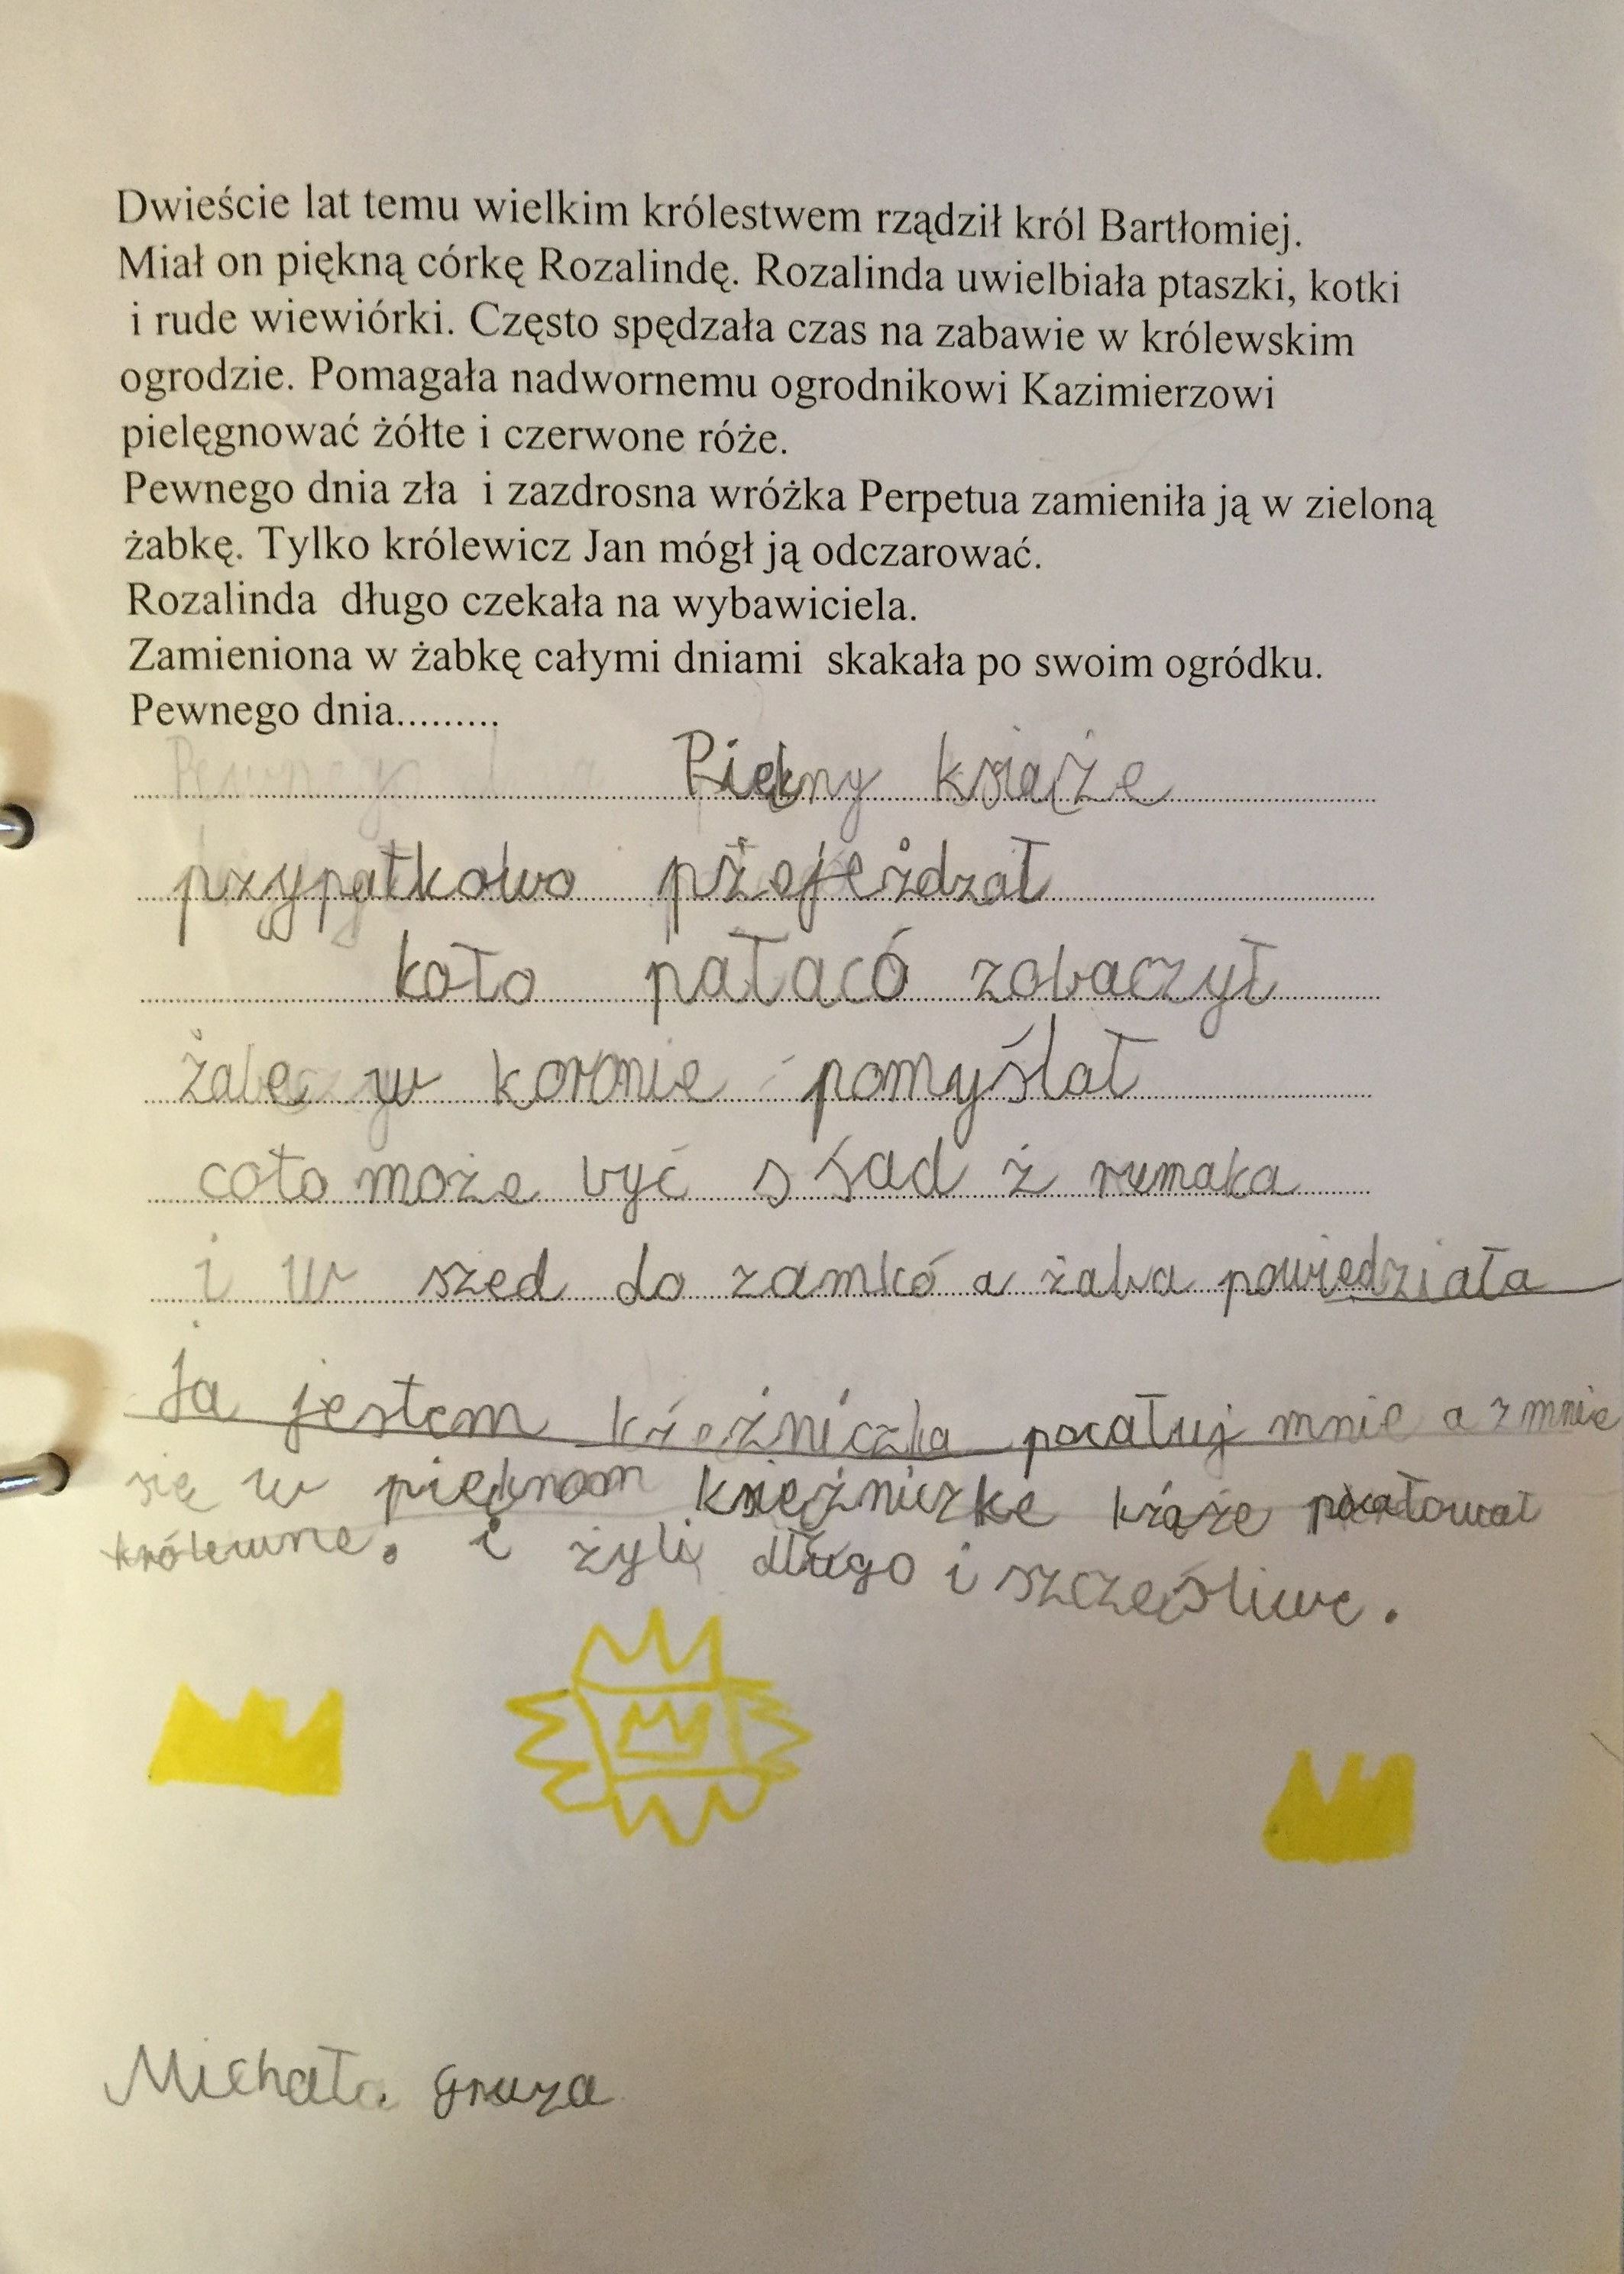 Dwieście lat temu wielkim królestwem rządził król Bartłomiej.
Miał on piękną córkę Rozalindę. Rozalinda uwielbiała ptaszki, kotki
i rude wiewiórki. Często spędzała czas na zabawie w królewskim
ogrodzie. Pomagała nadwornemu ogrodnikowi Kazimierzowi
pielęgnować żółte i czerwone róże.
Pewnego dnia zła i zazdrosna wróżka Perpetua zamieniła ją w zieloną
żabkę. Tylko królewicz Jan mógł ją odczarować.
Rozalinda długo czekała na wybawiciela.
Zamieniona w żabkę całymi dniami skakała po swoim ogródku.
Pewnego dnia.........
Piękny książe
przypatkowo pżejeżdzał
koło pałacó zobaczył
żabe w koronie pomyślał
coto może być s śad z rumaka
i w szed do zamkó a żaba powiedziała
Ja jestem kśeżniczka pocałuj mnie a zmnie
się w pięknom księżniczke kśąże pocałował
królewne. i żyli długo i szczęśliwe.
Michał. gruza